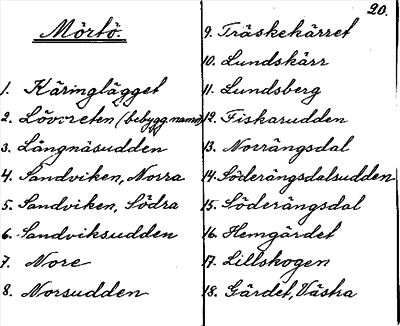 20.
Mörtö.
1. Käringlägget
2. Lövvreten (bebygg.namn)
3. Långnäsudden
4. Sandviken, Norra
5. Sandviken, Södra
6. Sandviksudden
7. Nore
8. Norsudden
9. Träskekärret
10. Lundskärr
11. Lundsberg
12. Fiskarudden
13. Norrängsdal
14. Söderängsdalsudden
15. Söderängsdal
16. Hemgärdet
17. Lillskogen
18. Gärdet, Västra